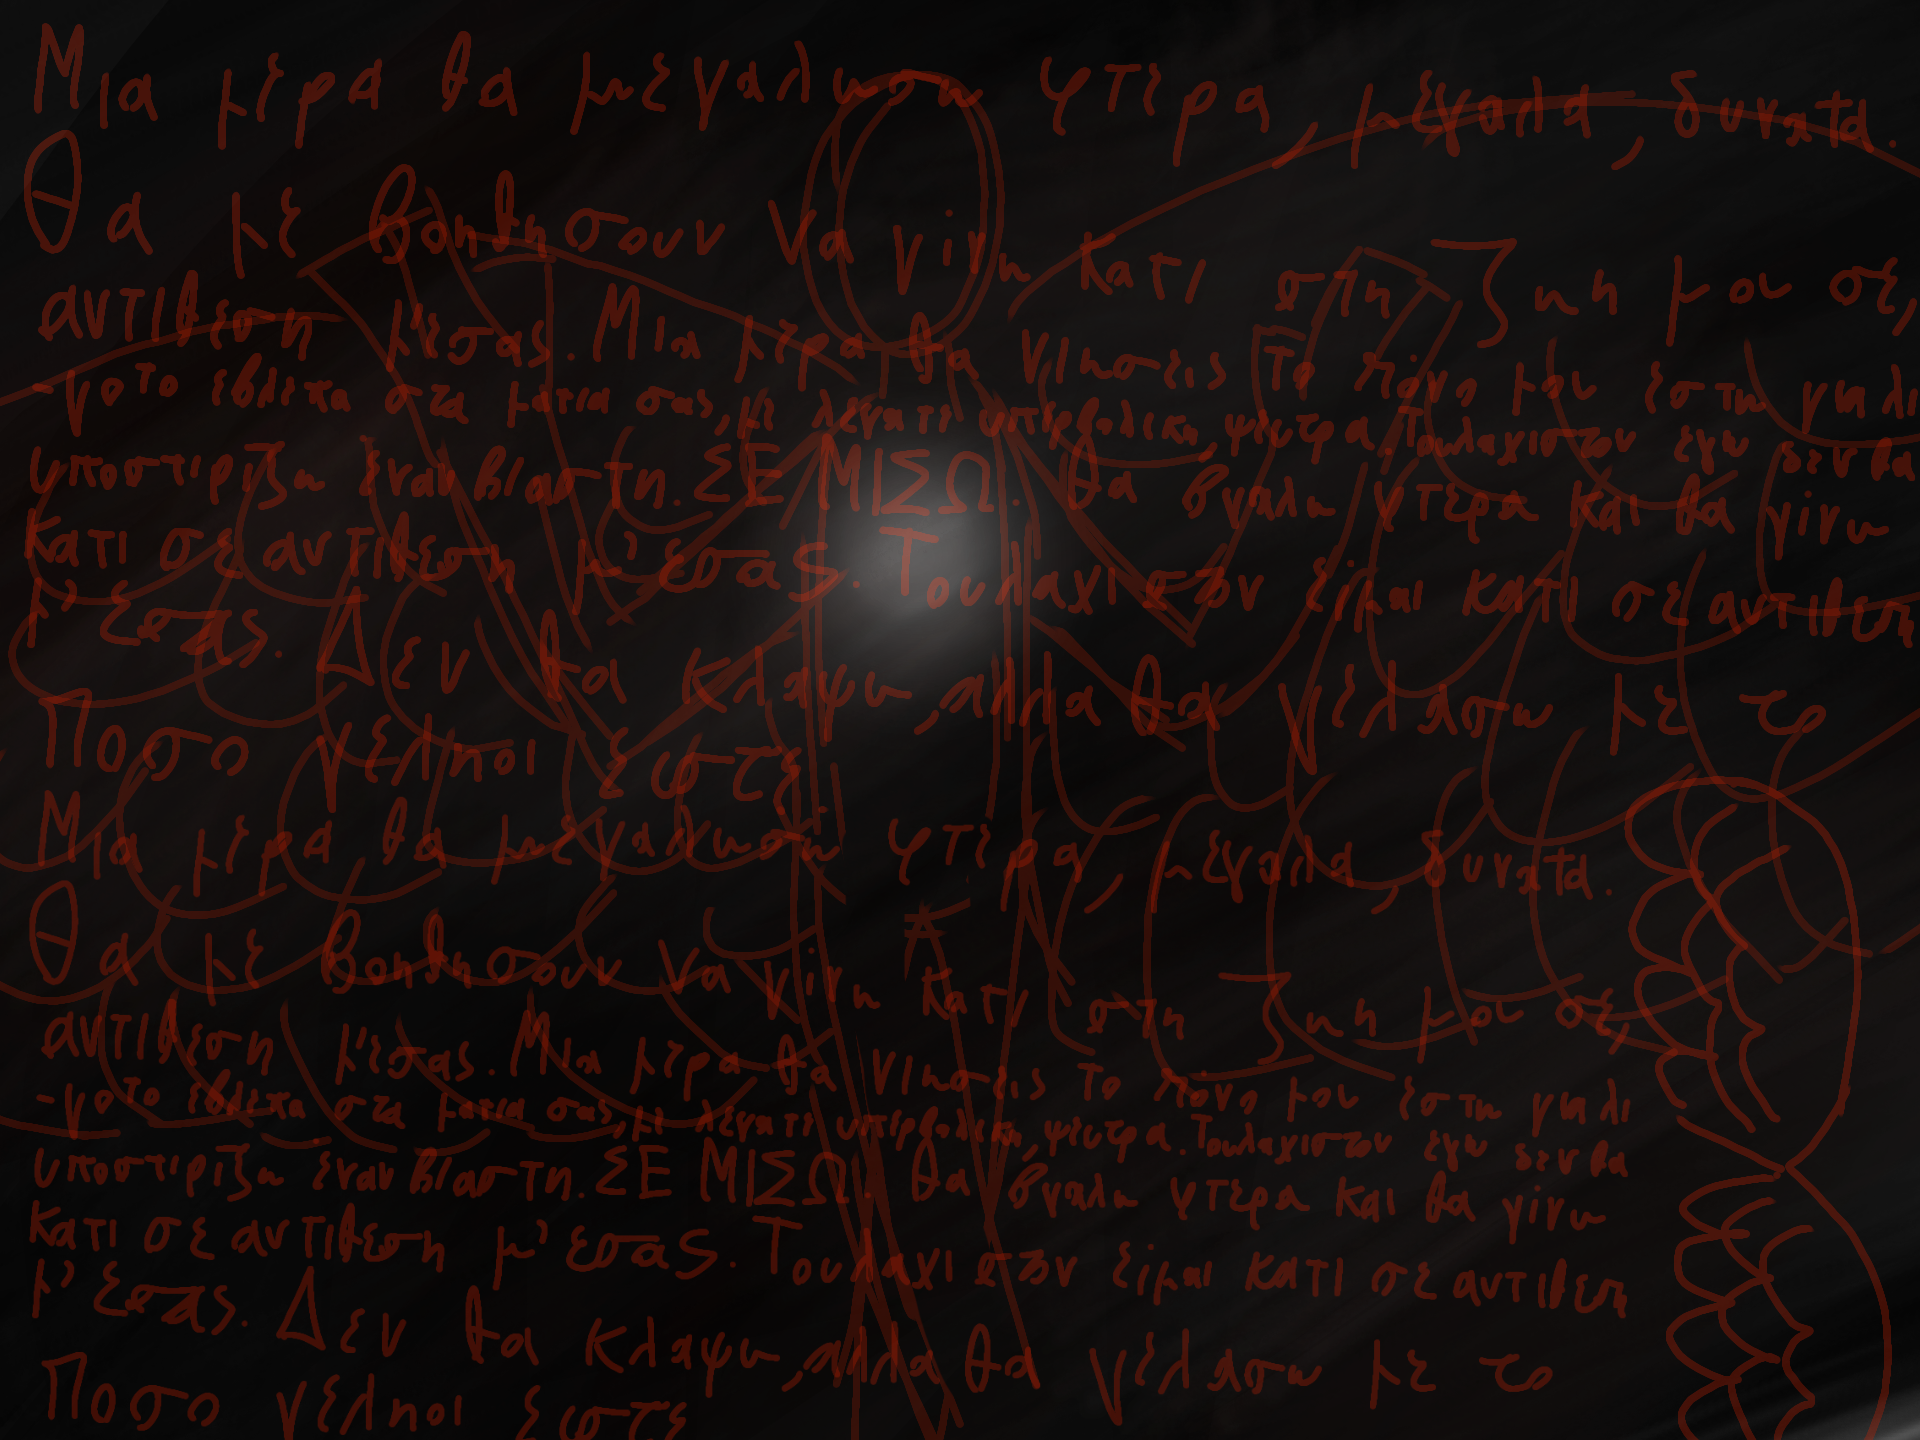 Μια μέρα θα μεγαλωσω φτέρα, μεγαλα, δυνατα.
Θα με βοηθησουν να γίνω κατι στη ζωη μου σε
αντιθεση μ'εσας. Μια μέρα θα νιωσεις το πονο μου εστω γιαλι
-γο το εβλεπα στα ματια σας, με λεγατε υπερβολικη, ψευτρα. Τουλαχιστον εγω δεν θα
υποστιριζω έναν βιαστη. ΣΕ ΜΙΣΩ. Θα βγαλω φτερα και θα γίνω
κατι σε αντιθεση μ' εσας. Τουλαχιστον είμαι κατι σε αντιθεση
μ' εσας. Δεν θα κλαψω, αλλα θα γελασω με το
Ποσο γελιοι εστε
Μια μέρα θα μεγαλωσω φτέρα, μεγαλα, δυνατα.
Θα με βοηθησουν να γίνω κατι στη ζωη μου σε
αντιθεση μ'εσας. Μια μέρα θα νιωσεις το πονο μου εστω γιαλι
-γο το εβλεπα στα ματια σας, με λεγατε υπερβολικη, ψευτρα. Τουλαχιστον εγω δεν θα
υποστιριζω έναν βιαστη. ΣΕ ΜΙΣΩ. Θα βγαλω φτερα και θα γίνω
κατι σε αντιθεση μ' εσας. Τουλαχιστον είμαι κατι σε αντιθεση
μ' εσας. Δεν θα κλαψω, αλλα θα γελασω με το
Ποσο γελιοι εστε